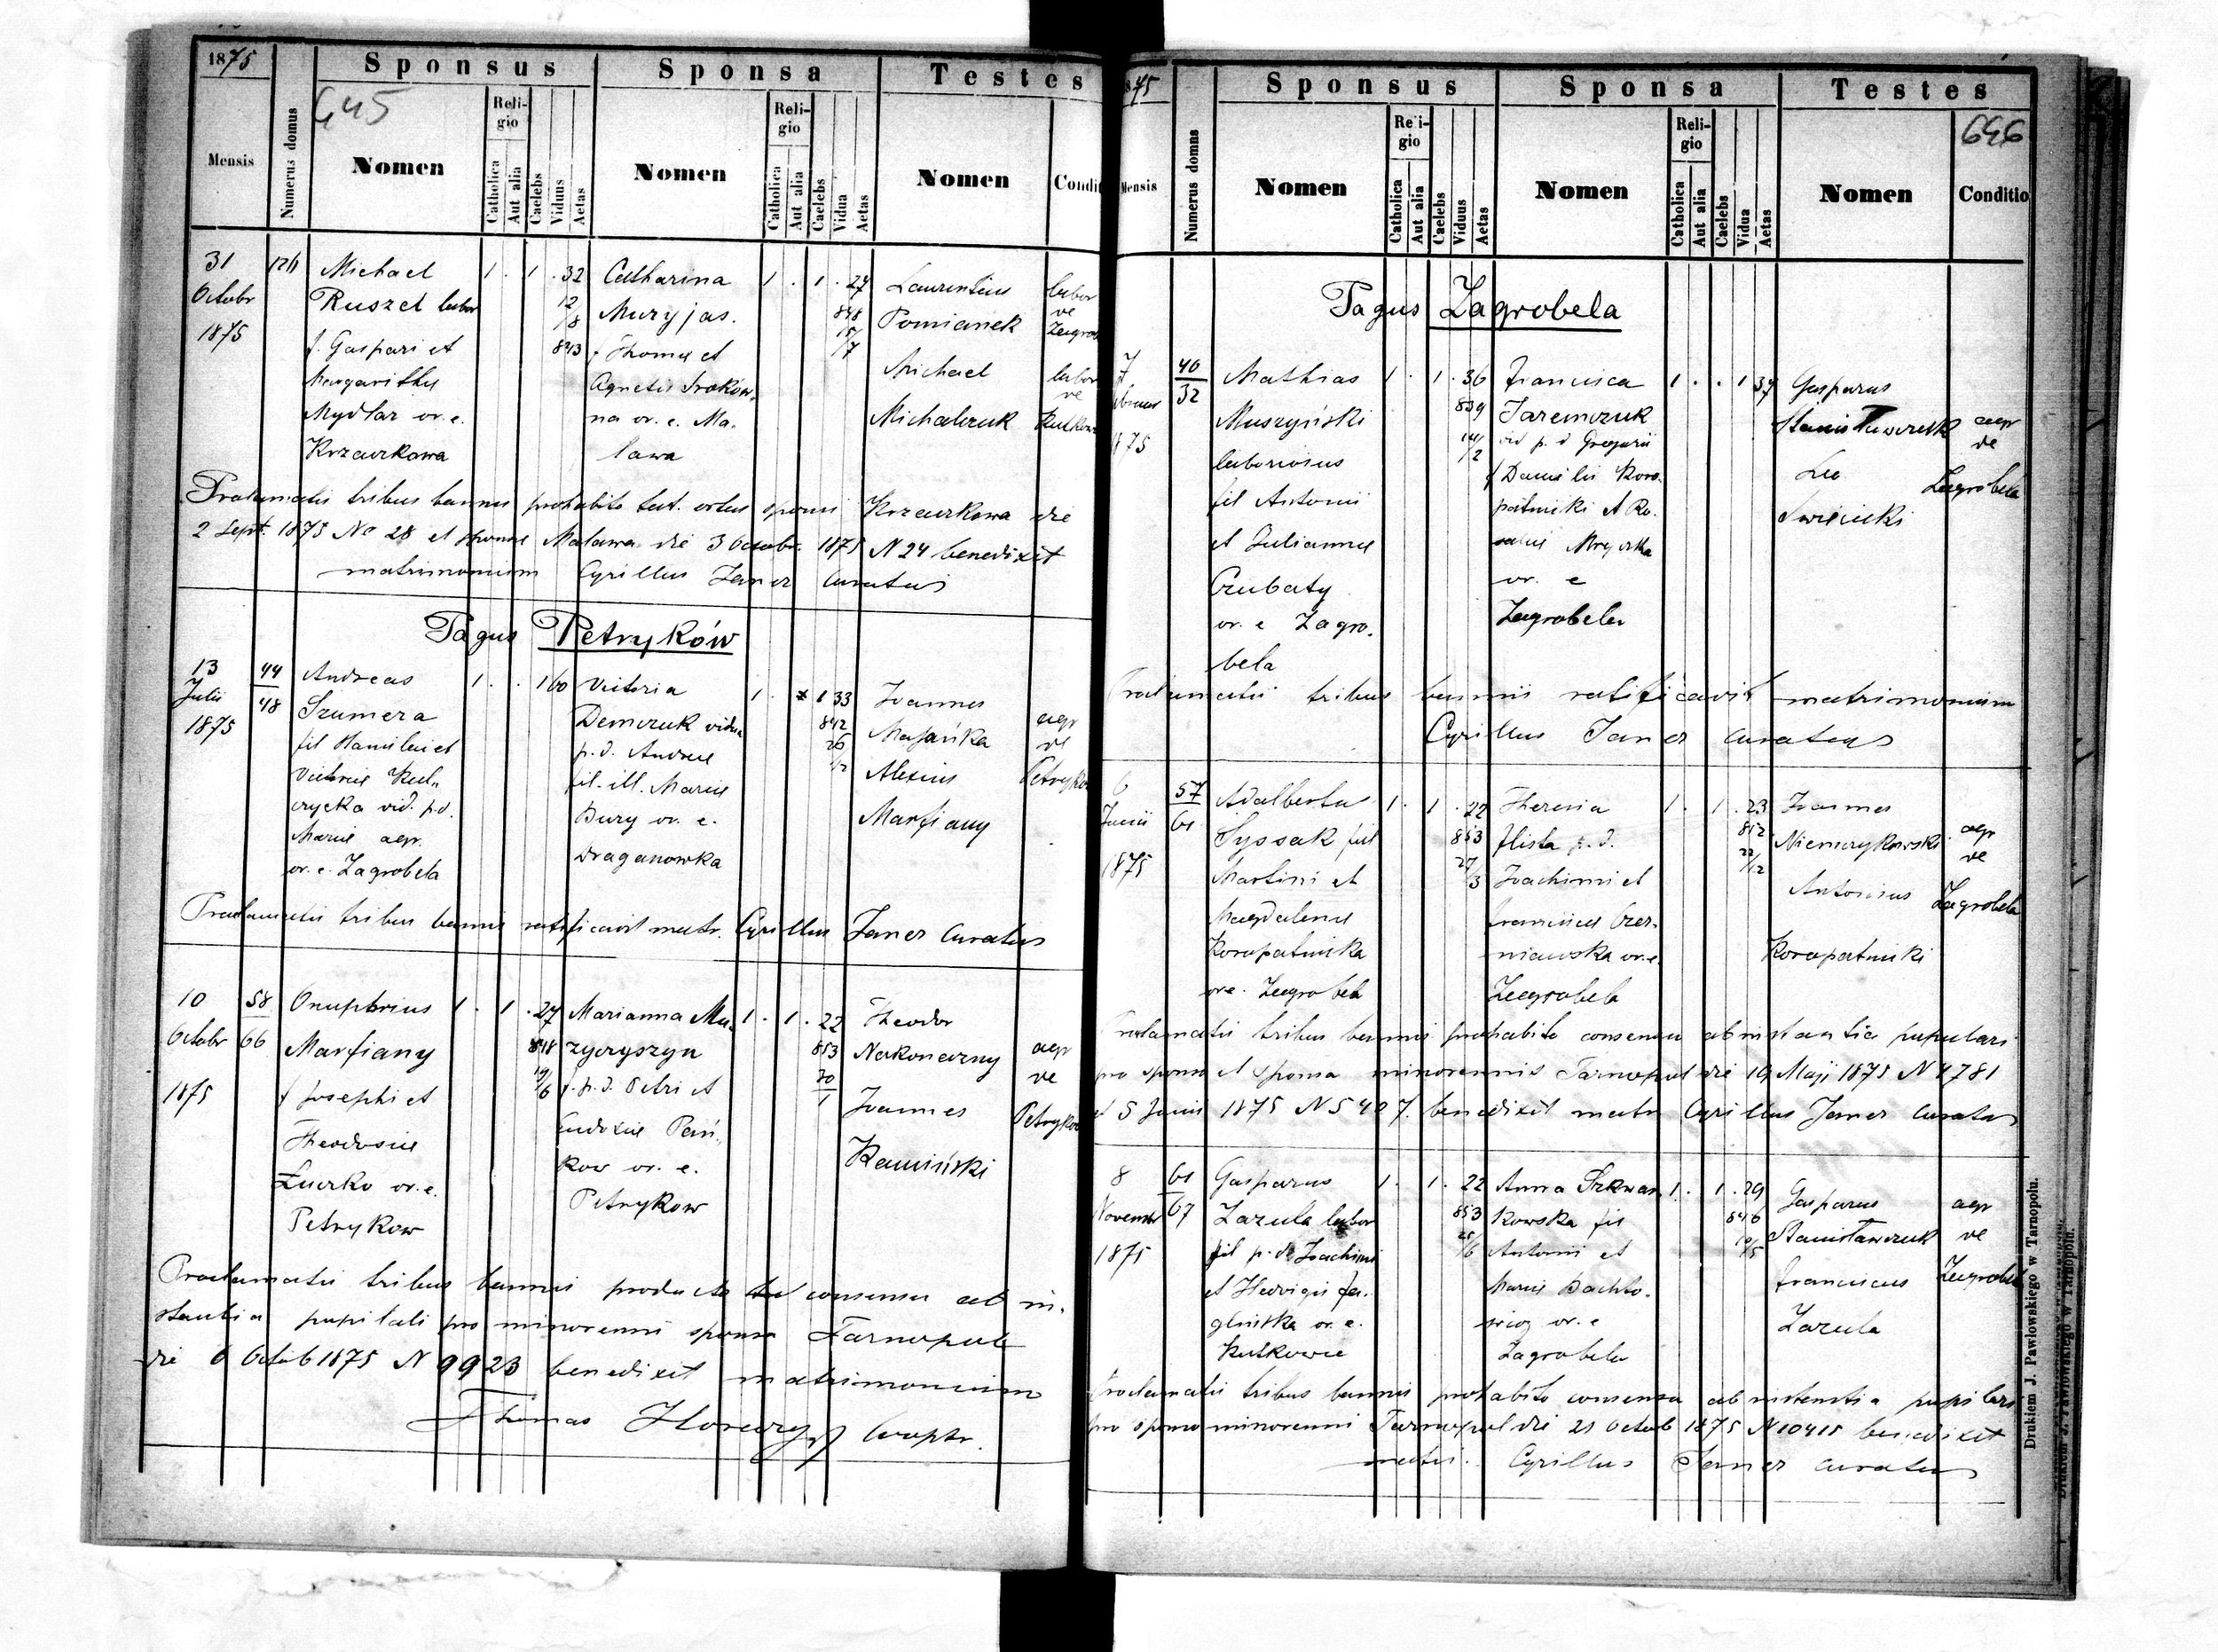 1875
Sponsus
Sponsa
Testes
645
Mensis
Numerus domus
Nomen
Religio
Catholica
Aut alia
Caelebs
Viduus
Aetas
Nomen
Religio
Catholica
Aut alia
Caelebs
Vidua
Aetas
Nomen
31 126 Michael 1 . 1 . 32 Catharina 1 . 1 . 27 Laurentius labor
Octobr Ruszel labor 12/8 Muryjas. 848 Pomianek ve
1875 f. Gaspari et 843 f Thomae et 15/7
Margarithae Agnetis Michael labor
Mydlar or. e. na or. e. Ma- Michalczuk ve
Krzaczkowa lawa
Proclamatis tribus bannis prohabito test. ortus sponsi Krzaczkowa die
2 Sept. 1875 No 28 et sponsae Malawa die 3 Octobr. 1875 N 24 benedixit
matrimonium Cyrillus Janer Curatus
Pagus Petryków
13 44 Andreas 1 . . 1 60 Victoria 1 . 1 33 Joannes
Julii 48 Szumera Demczuk vidua 842 agr
1875 fil et p. d. Andreae 26/12 ve
Victoriae fil. ill. Mariae Alexius
vid. p. d. Bury or. e. Marfiany
Mariae agr. Draganowka
or. e. Zagrobela
Proclamatis tribus bannis ratificavit matr. Cyrillus Janer Curatus
10 58 Onuphrius 1 . 1 . 27 Marianna Mu- 1 . 1 . 22 Theodor
Octobr 66 Marfiany 848 zyczyszyn 853 Nakoneczny agr
1875 f Josephi et 19/6 f. p. d. Petri et 30/1 ve
Theodosiae Eudoxiae Joannes
or. e. kow or. e. Kamiński
Petrykow Petrykow
Proclamatis tribus bannis producto consensu ab in-
stantia pupilali pro minorenni sponsa Tarnopol
die 6 Octob 1875 N 9923 benedixit matrimonium
Thomas
1875
Sponsus
Sponsa
Testes
646
Mensis
Numerus domus
Nomen
Religio
Catholica
Aut alia
Caelebs
Viduus
Aetas
Nomen
Religio
Catholica
Aut alia
Caelebs
Vidua
Aetas
Nomen
Conditio
Pagus Zagrobela
7 40 Mathias 1 . 1 . 36 Francisca 1 . . 1 37 Gasparus
32 Muszyński 839 Jaremczuk Stanisławczuk agr
laboriosus 14/2 vid p. d Gregorii ve
fil Antonii f Danielis Koro- Leo Zagrobela
et Juliannae patnicki et Ro- Swiecicki
Czubaty saliae
or. e Zagro- or. e
bela Zagrobela
Proclamatis tribus bannis ratificavit matrimonium
Cyrillus Janer Curatus
6 57 Adalbertus 1 . 1 . 22 Theresia 1 . 1 . 23 Joannes
Junii 61 Syssak fil 853 p. d. 852 Niemczykowski agr
1875 Martini et 27/3 Joachimi et 22/12 ve
Magdalenae Franciscae Czer- Antonius Zagrobela
Koropatnicka niawska or. e. Koropatnicki
or. e. Zagrobela Zagrobela
Proclamatis tribus bannis prohabito consensu ab instantia pupilari
pro sponso et sponsa minorennis Tarnopol die 19 Maji 1875 N 4781
et 5 Junii 1875 N 5407. benedixit matr Cyrillus Janer Curatus
8 61 Gasparus 1 . 1 . 22 Anna Szkwar- 1 . 1 . 29 Gasparus agr
Novembr 67 Zazula labor 853 kowska fil 846 Stanisławczuk ve
1875 fil p. d. Joachimi 25/6 Antonii et 10/5
et Hedvigis Ja- Mariae Franciscus Zagrobela
glinska or. e. or. e Zazula
Kutkowce Zagrobela
Proclamatis tribus bannis prohabito consensu ab instantia pupilari
pro sponso minorenni Tarnopol die 21 Octob 1875 N 10415 benedixit
matri. Cyrillus Janer Curatus
Drukiem J. Pawlowskiego w Tarnopolu.